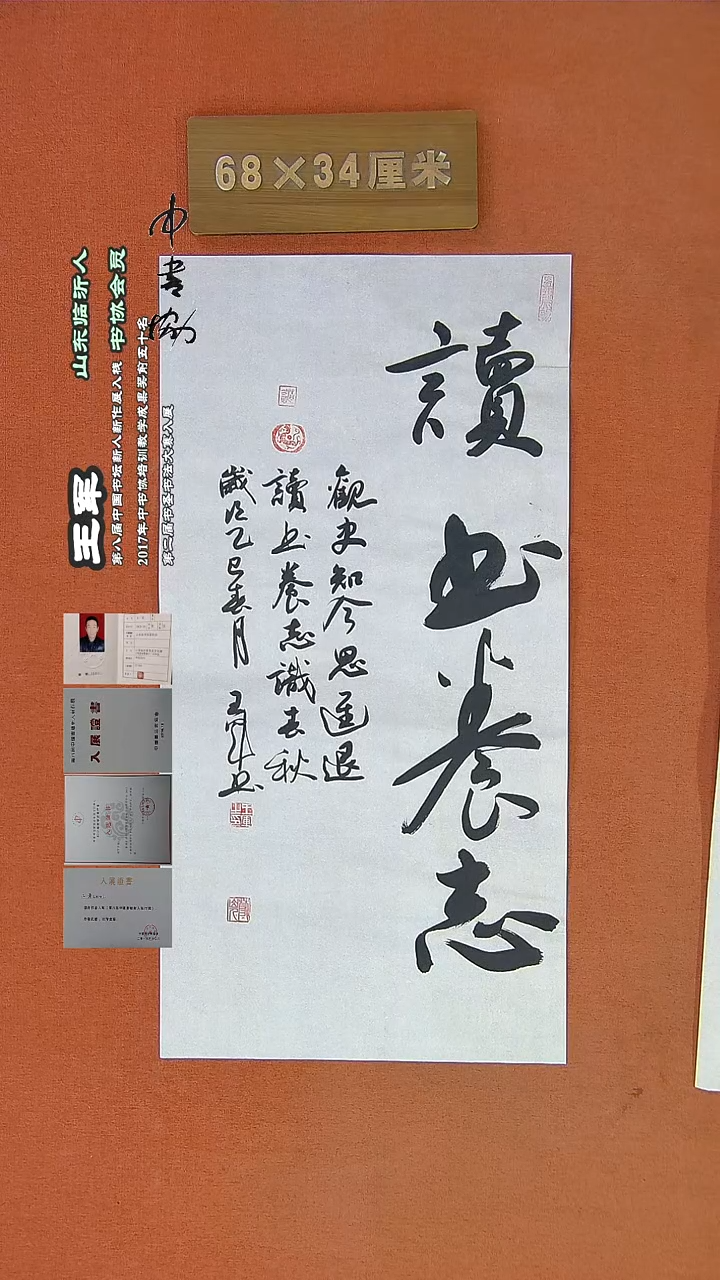 68×34厘米
讀书養志
觀史知今思進退
讀书養志識春秋
歲次乙巳春月 王军书
中书协
山东临沂人
书协会员
王军
第八届中国书坛新人新作展入展
2017年中书协培训教学成果奖前五十名
第二届书圣书法大赛入展
入展證書
入展證書